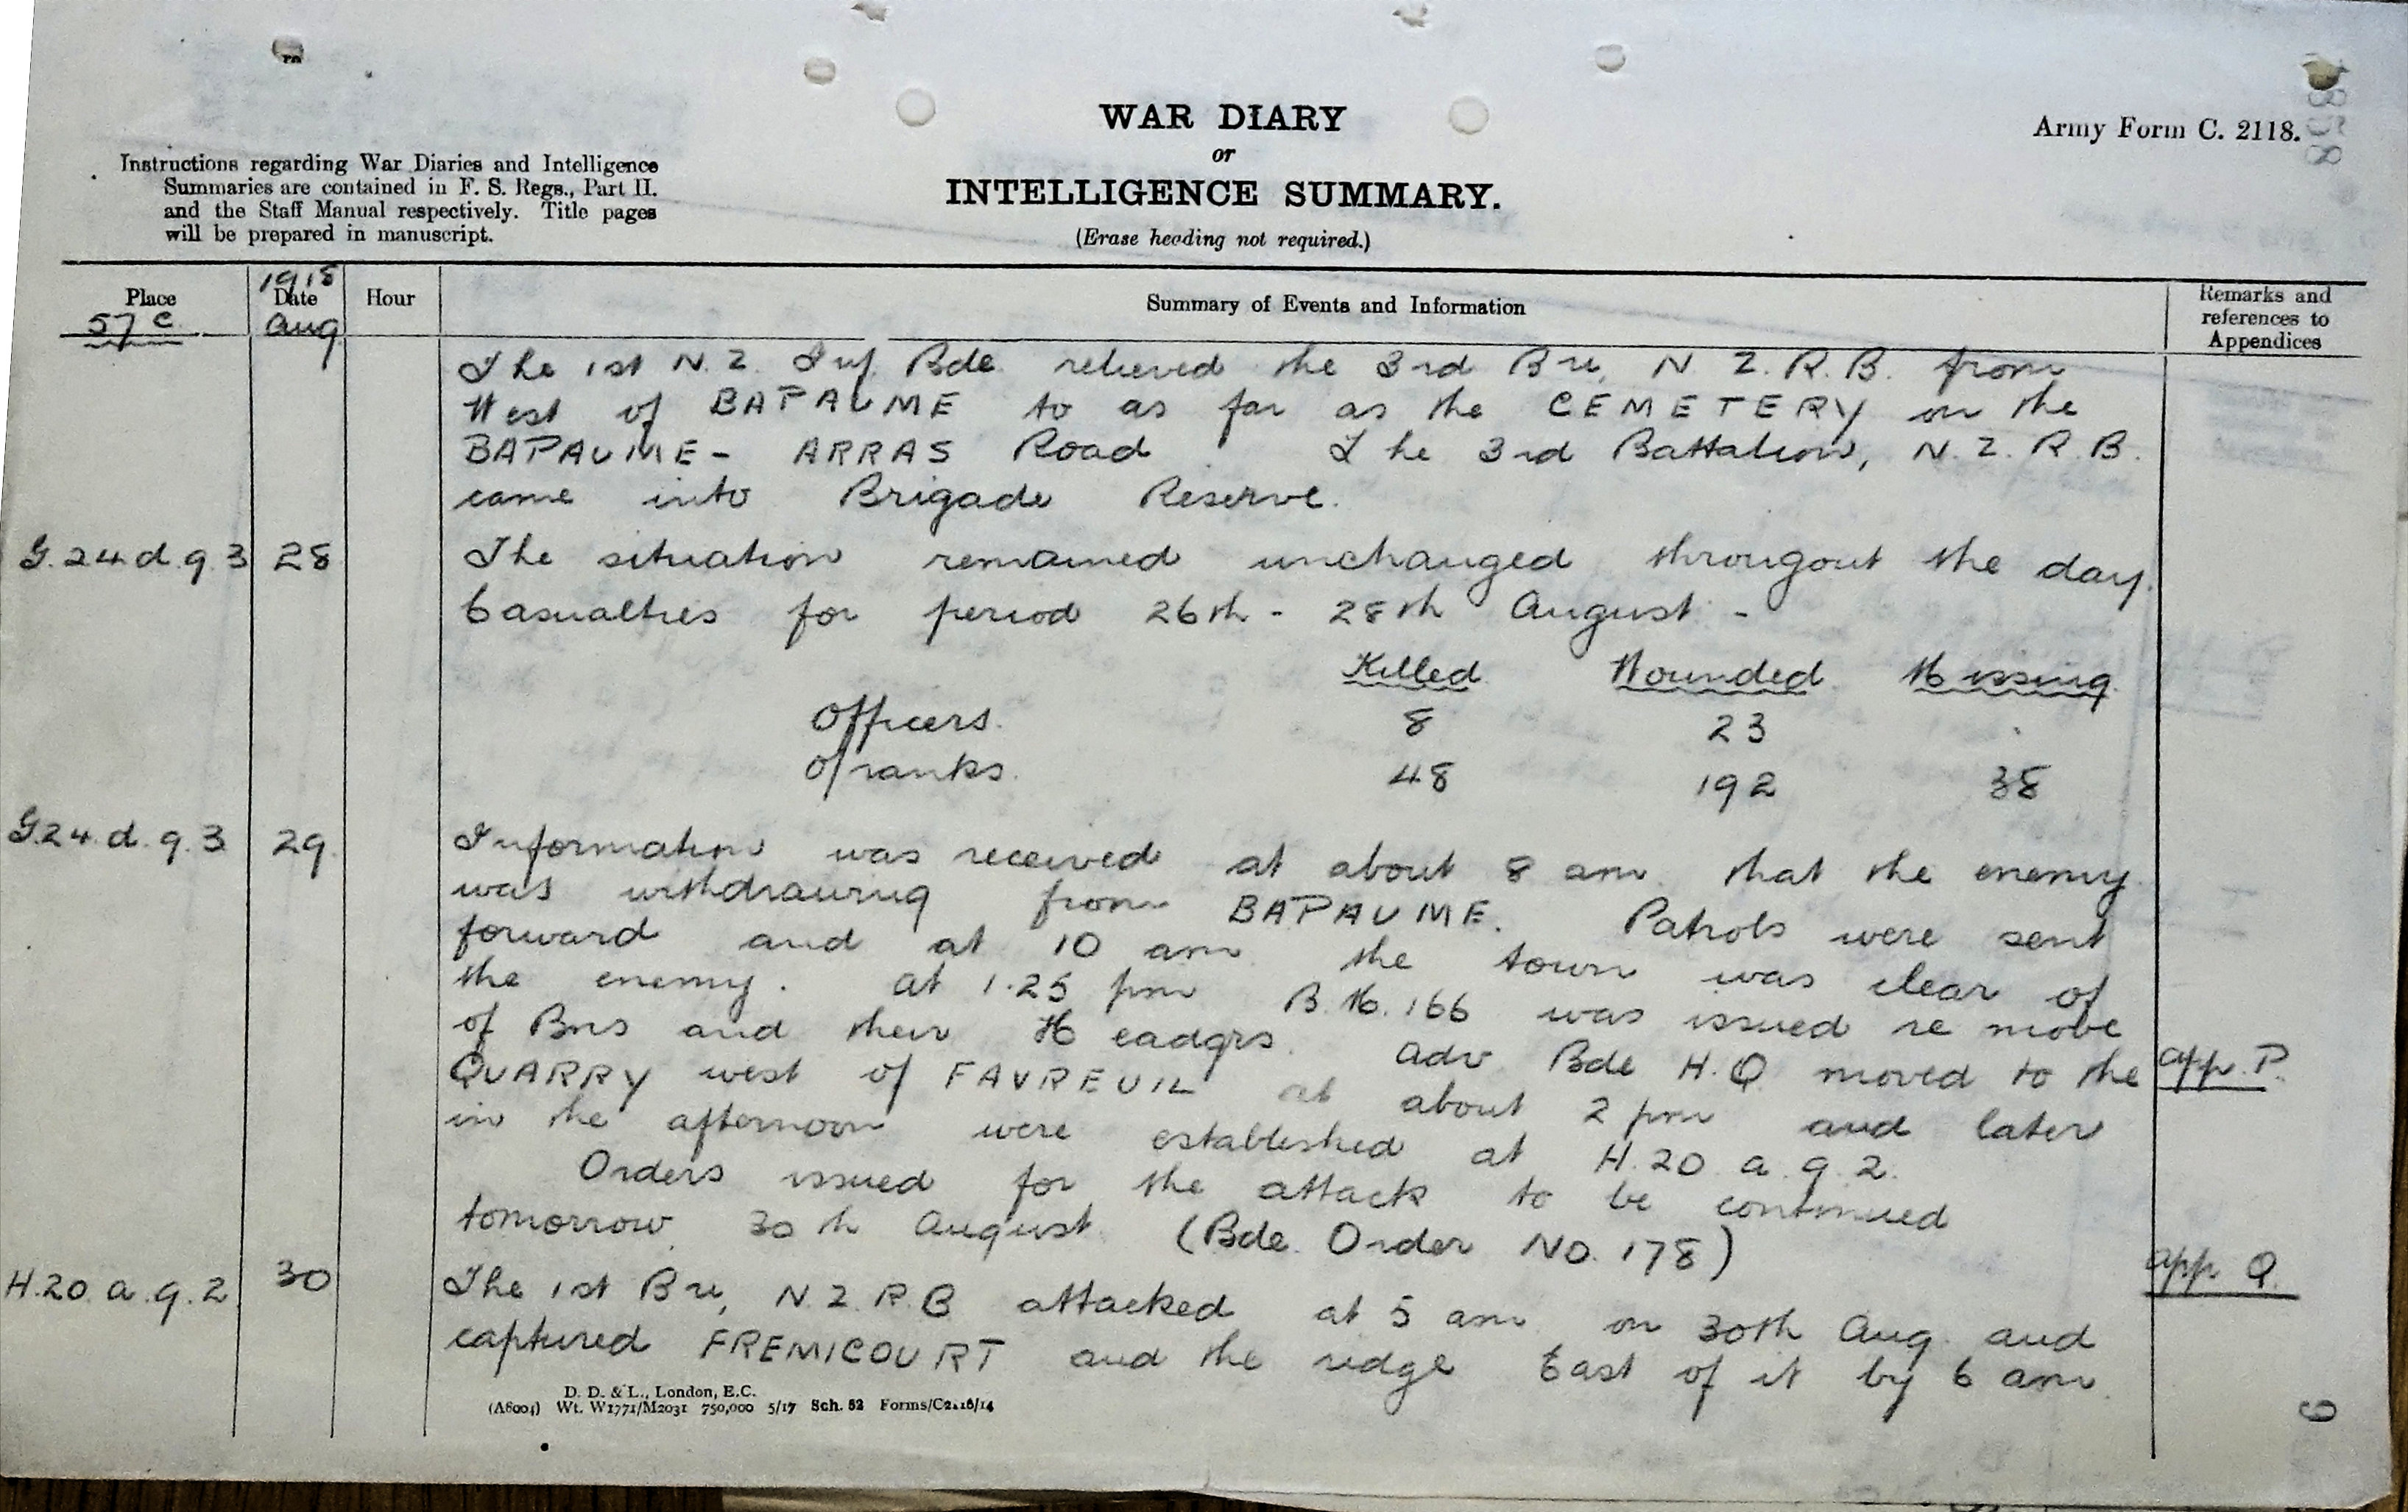 WAR DIARY
or
INTELLIGENCE SUMMARY.
(Erase heading not required.)
Army Form C. 2118.
Instructions regarding War Diaries and Intelligence
Summaries are contained in F. S. Regs., Part II.
and the Staff Manual respectively. Title pages
will be prepared in manuscript.
Place
57c
1918
Date
Aug
Hour
Summary of Events and Information
Remarks and
references to
Appendices
The 1st N.Z. Inf. Bde relieved the 3rd Bn, N.Z.R.B. from
West of BAPAUME to as far as the CEMETERY on the
BAPAUME - ARRAS Road The 3rd Battalion, N.Z.R.B.
came into Brigade Reserve.
G.24.d.9.3 28 The situation remained unchanged througout the day.
Casualties for period 26th - 28th August -
Killed Wounded Missing
Officers. 8 23 .
O/ranks. 48 192 38
G.24.d.9.3 29. Information was received at about 8 am that the enemy
was withdrawing from BAPAUME. Patrols were sent
forward and at 10 am the town was clear of
the enemy. At 1.25 pm B.M.166 was issued re move
of Bns and their Headqrs. Adv Bde H.Q moved to the app. P.
QUARRY west of FAVREUIL at about 2 pm and later
in the afternoon were established at H.20.a.9.2.
Orders issued for the attack to be continued
tomorrow 30th August (Bde Order No. 178) app Q.
H.20.a.9.2 30 The 1st Bn, N.Z.R.B attacked at 5 am on 30th Aug and
captured FREMICOURT and the ridge East of it by 6 am.
D. D. & L., London, E.C.
(A6004) Wt. W1771/M2031 750,000 5/17 Sch. 52 Forms/C2118/14